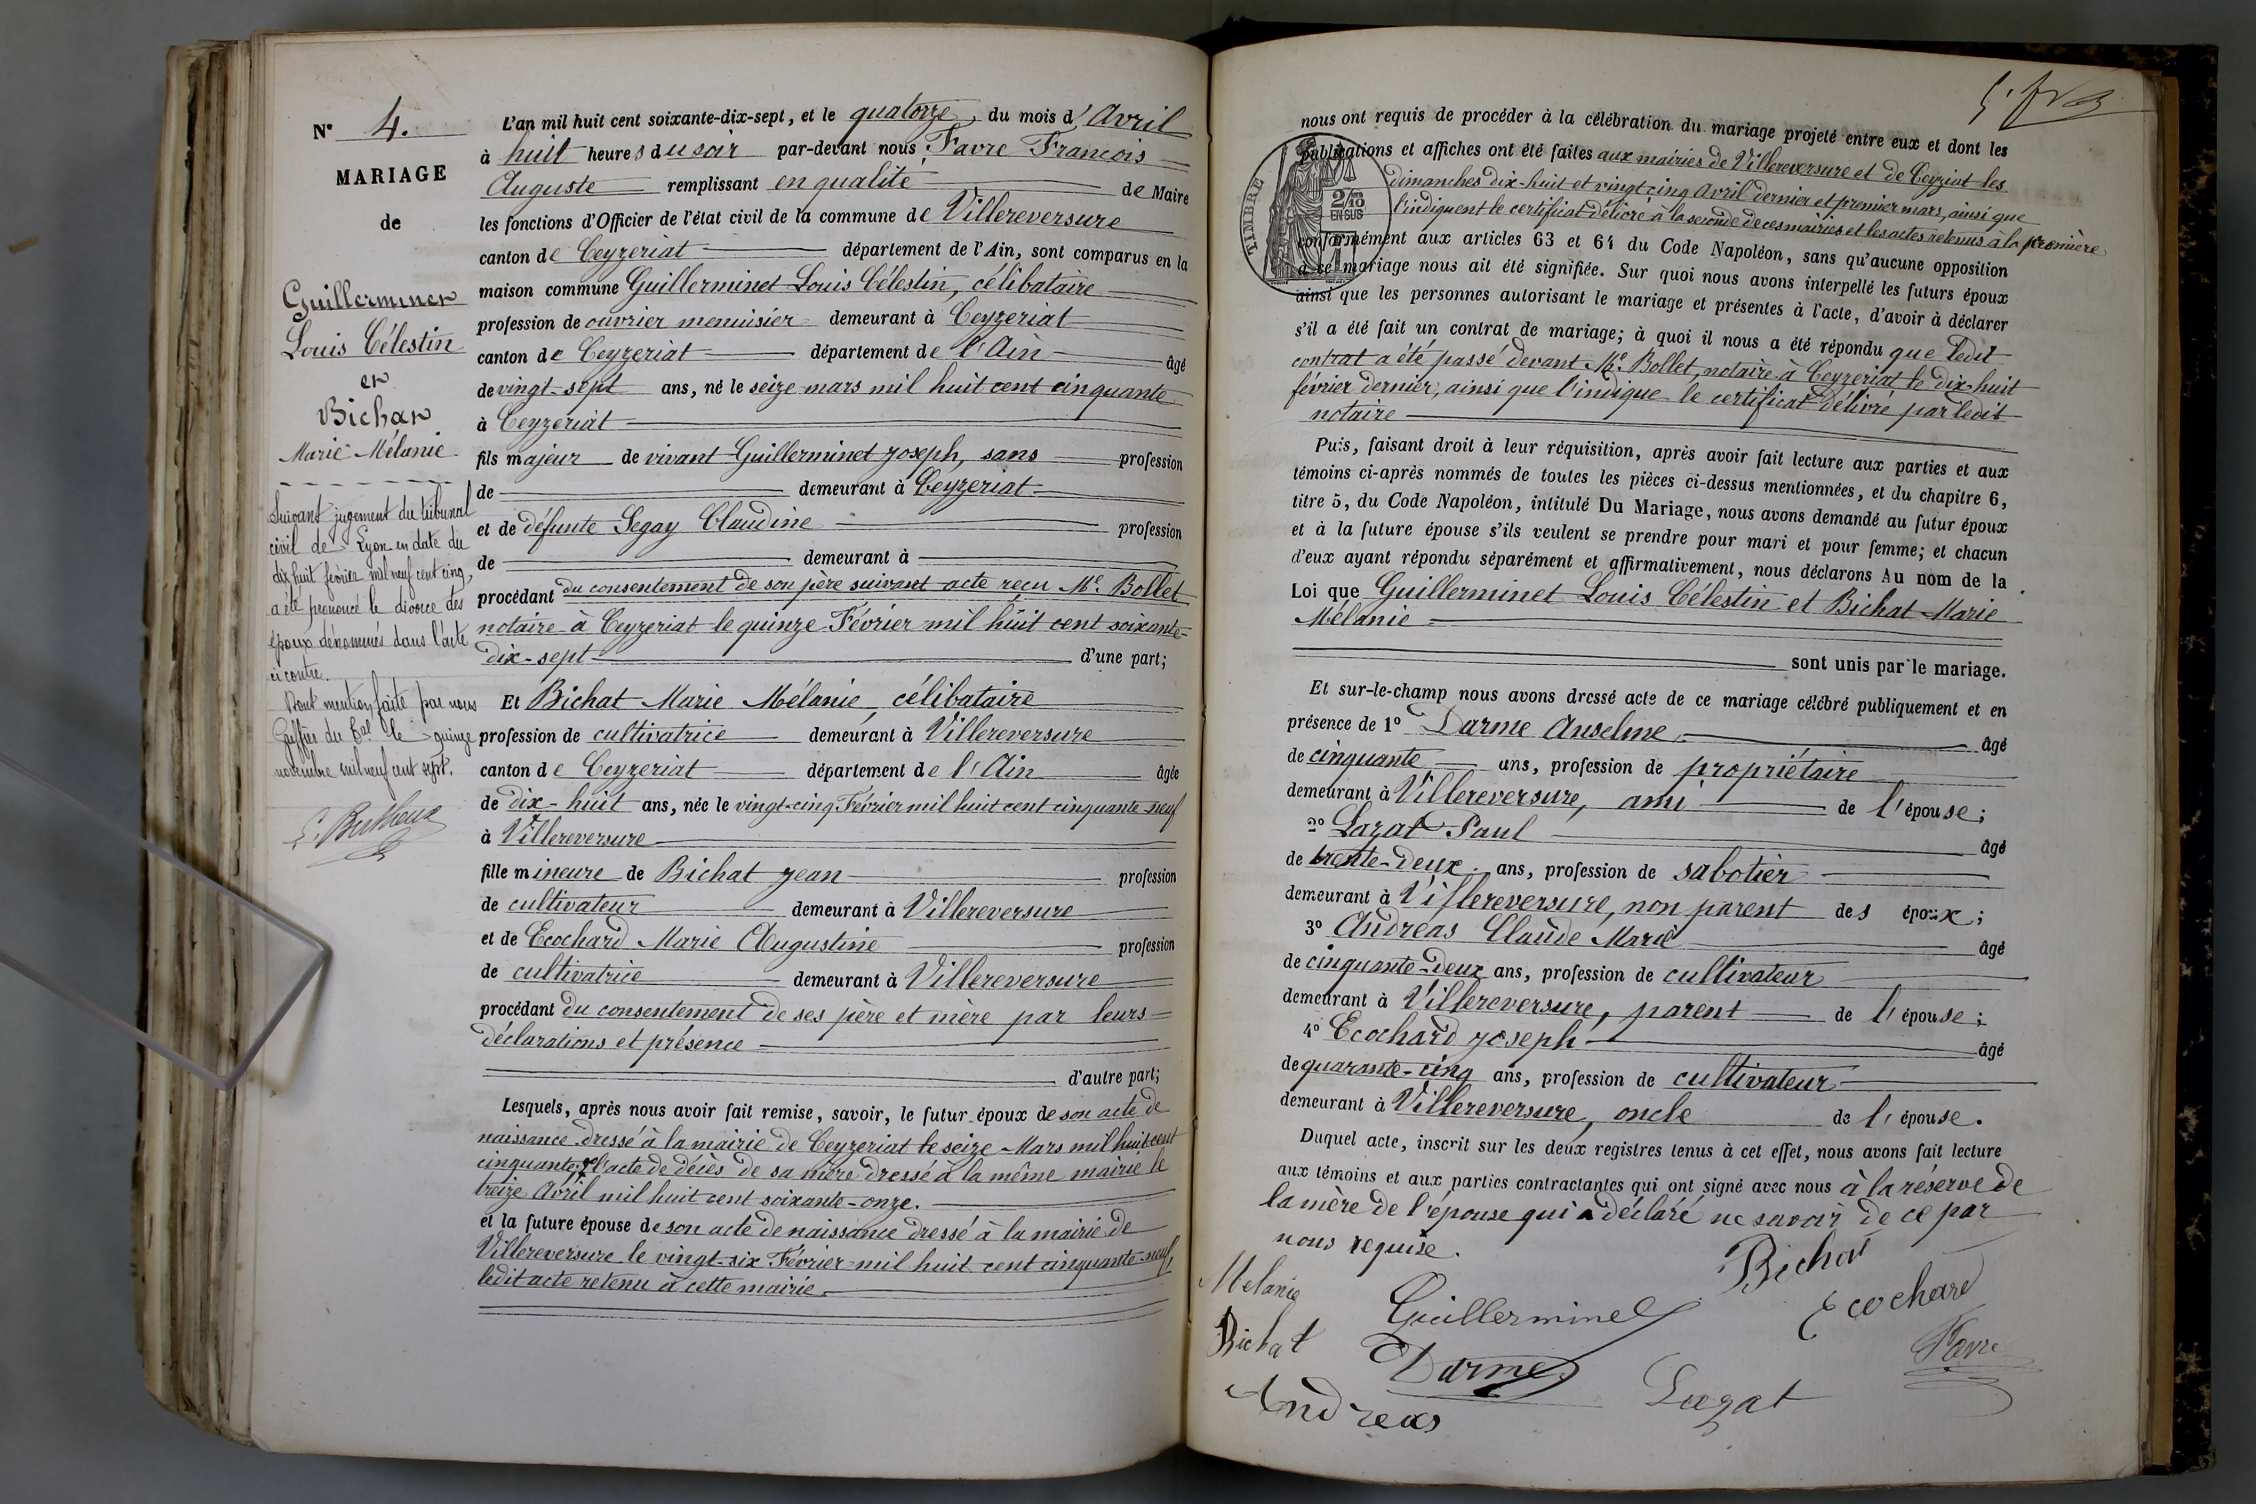 N° 4.
MARIAGE
de
Guillerminet
Louis Célestin
et
Bichat
Marie Mélanie
Suivant jugement du tribunal
civil de Lyon en date du
dix huit février mil neuf cent cinq,
a été prononcé le divorce des
époux dénommés dans l'acte
ci contre.
Dont mention faite par nous
Greffier du Bal le quinze
novembre mil neuf cent sept.
L'an mil huit cent soixante-dix-sept, et le quatorze, du mois d'Avril
à huit heures du soir par-devant nous Favre François
Auguste remplissant en qualité de Maire
les fonctions d'Officier de l'état civil de la commune de Villereversure
canton de Ceyzeriat département de l'Ain, sont comparus en la
maison commune Guillerminet Louis Célestin, célibataire
profession de ouvrier menuisier demeurant à Ceyzeriat
canton de Ceyzeriat département de l'Ain âgé
de vingt-sept ans, né le seize mars mil huit cent cinquante
à Ceyzeriat
fils majeur de vivant Guillerminet Joseph, sans profession
de demeurant à Ceyzeriat
et de défunte Segay Claudine profession
de demeurant à
procédant du consentement de son père suivant acte reçu Me. Bollet
notaire à Ceyzeriat le quinze Février mil huit cent soixante-
dix-sept d'une part;
Et Bichat Marie Mélanie, célibataire
profession de cultivatrice demeurant à Villereversure
canton de Ceyzeriat département de l'Ain âgée
de dix-huit ans, née le vingt-cinq Février mil huit cent cinquante neuf
à Villereversure
fille mineure de Bichat Jean profession
de cultivateur demeurant à Villereversure
et de Ecochard Marie Augustine profession
de cultivatrice demeurant à Villereversure
procédant du consentement de ses père et mère par leurs
déclarations et présence
d'autre part;
Lesquels, après nous avoir fait remise, savoir, le futur époux de son acte de
naissance dressé à la mairie de Ceyzeriat le seize Mars mil huit cent
cinquante; de l'acte de décès de sa mère dressé à la même mairie le
treize Avril mil huit cent soixante-onze.
et la future épouse de son acte de naissance dressé à la mairie de
Villereversure le vingt-six Février mil huit cent cinquante-neuf,
ledit acte retenu à cette mairie.
nous ont requis de procéder à la célébration du mariage projeté entre eux et dont les
publications et affiches ont été faites aux mairies de Villereversure et de Ceyzeriat les
dimanches dix-huit et vingt cinq Avril dernier et premier mars, ainsi que
l'indiquent le certificat délivré à la seconde de ces mairies et les actes retenus à la première
TIMBRE
2/10
EN SUS
conformément aux articles 63 et 64 du Code Napoléon, sans qu'aucune opposition
à ce mariage nous ait été signifiée. Sur quoi nous avons interpellé les futurs époux
ainsi que les personnes autorisant le mariage et présentes à l'acte, d'avoir à déclarer
s'il a été fait un contrat de mariage; à quoi il nous a été répondu que ledit
contrat a été passé devant Me. Bollet, notaire à Ceyzeriat le dix-huit
février dernier, ainsi que l'indique le certificat délivré par ledit
notaire
Puis, faisant droit à leur réquisition, après avoir fait lecture aux parties et aux
témoins ci-après nommés de toutes les pièces ci-dessus mentionnées, et du chapitre 6,
titre 5, du Code Napoléon, intitulé Du Mariage, nous avons demandé au futur époux
et à la future épouse s'ils veulent se prendre pour mari et pour femme; et chacun
d'eux ayant répondu séparément et affirmativement, nous déclarons Au nom de la
Loi que Guillerminet Louis Célestin et Bichat Marie
Mélanie
sont unis par le mariage.
Et sur-le-champ nous avons dressé acte de ce mariage célébré publiquement et en
présence de 1° Darme Anselme âgé
de cinquante ans, profession de propriétaire
demeurant à Villereversure, ami de l'épouse;
2° Lazat Paul âgé
de trente-deux ans, profession de sabotier
demeurant à Villereversure, non parent des époux;
3° Andréas Claude Marie âgé
de cinquante-deux ans, profession de cultivateur
demeurant à Villereversure, parent de l'épouse;
4° Ecochard Joseph âgé
de quarante-cinq ans, profession de cultivateur
demeurant à Villereversure, oncle de l'épouse.
Duquel acte, inscrit sur les deux registres tenus à cet effet, nous avons fait lecture
aux témoins et aux parties contractantes qui ont signé avec nous à la réserve de
la mère de l'épouse qui a déclaré ne savoir de ce par
nous requise.
Bichat
Mélanie
Bichat
Guillerminet
Ecochard
Darme
Favre
Lazat
Andréas